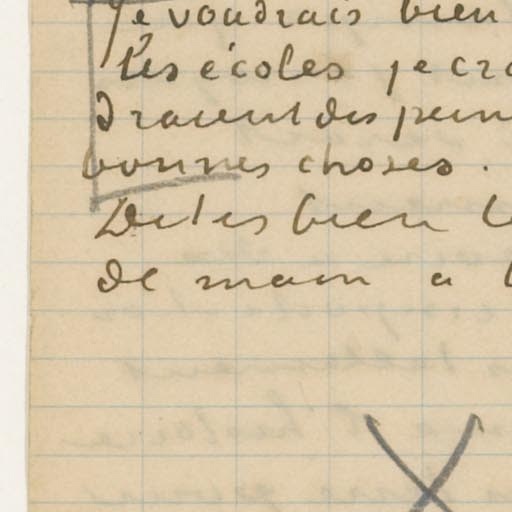 Je voudrais bien
les écoles je cro
draient des pein
bonnes choses.
Dites bien le
de main a